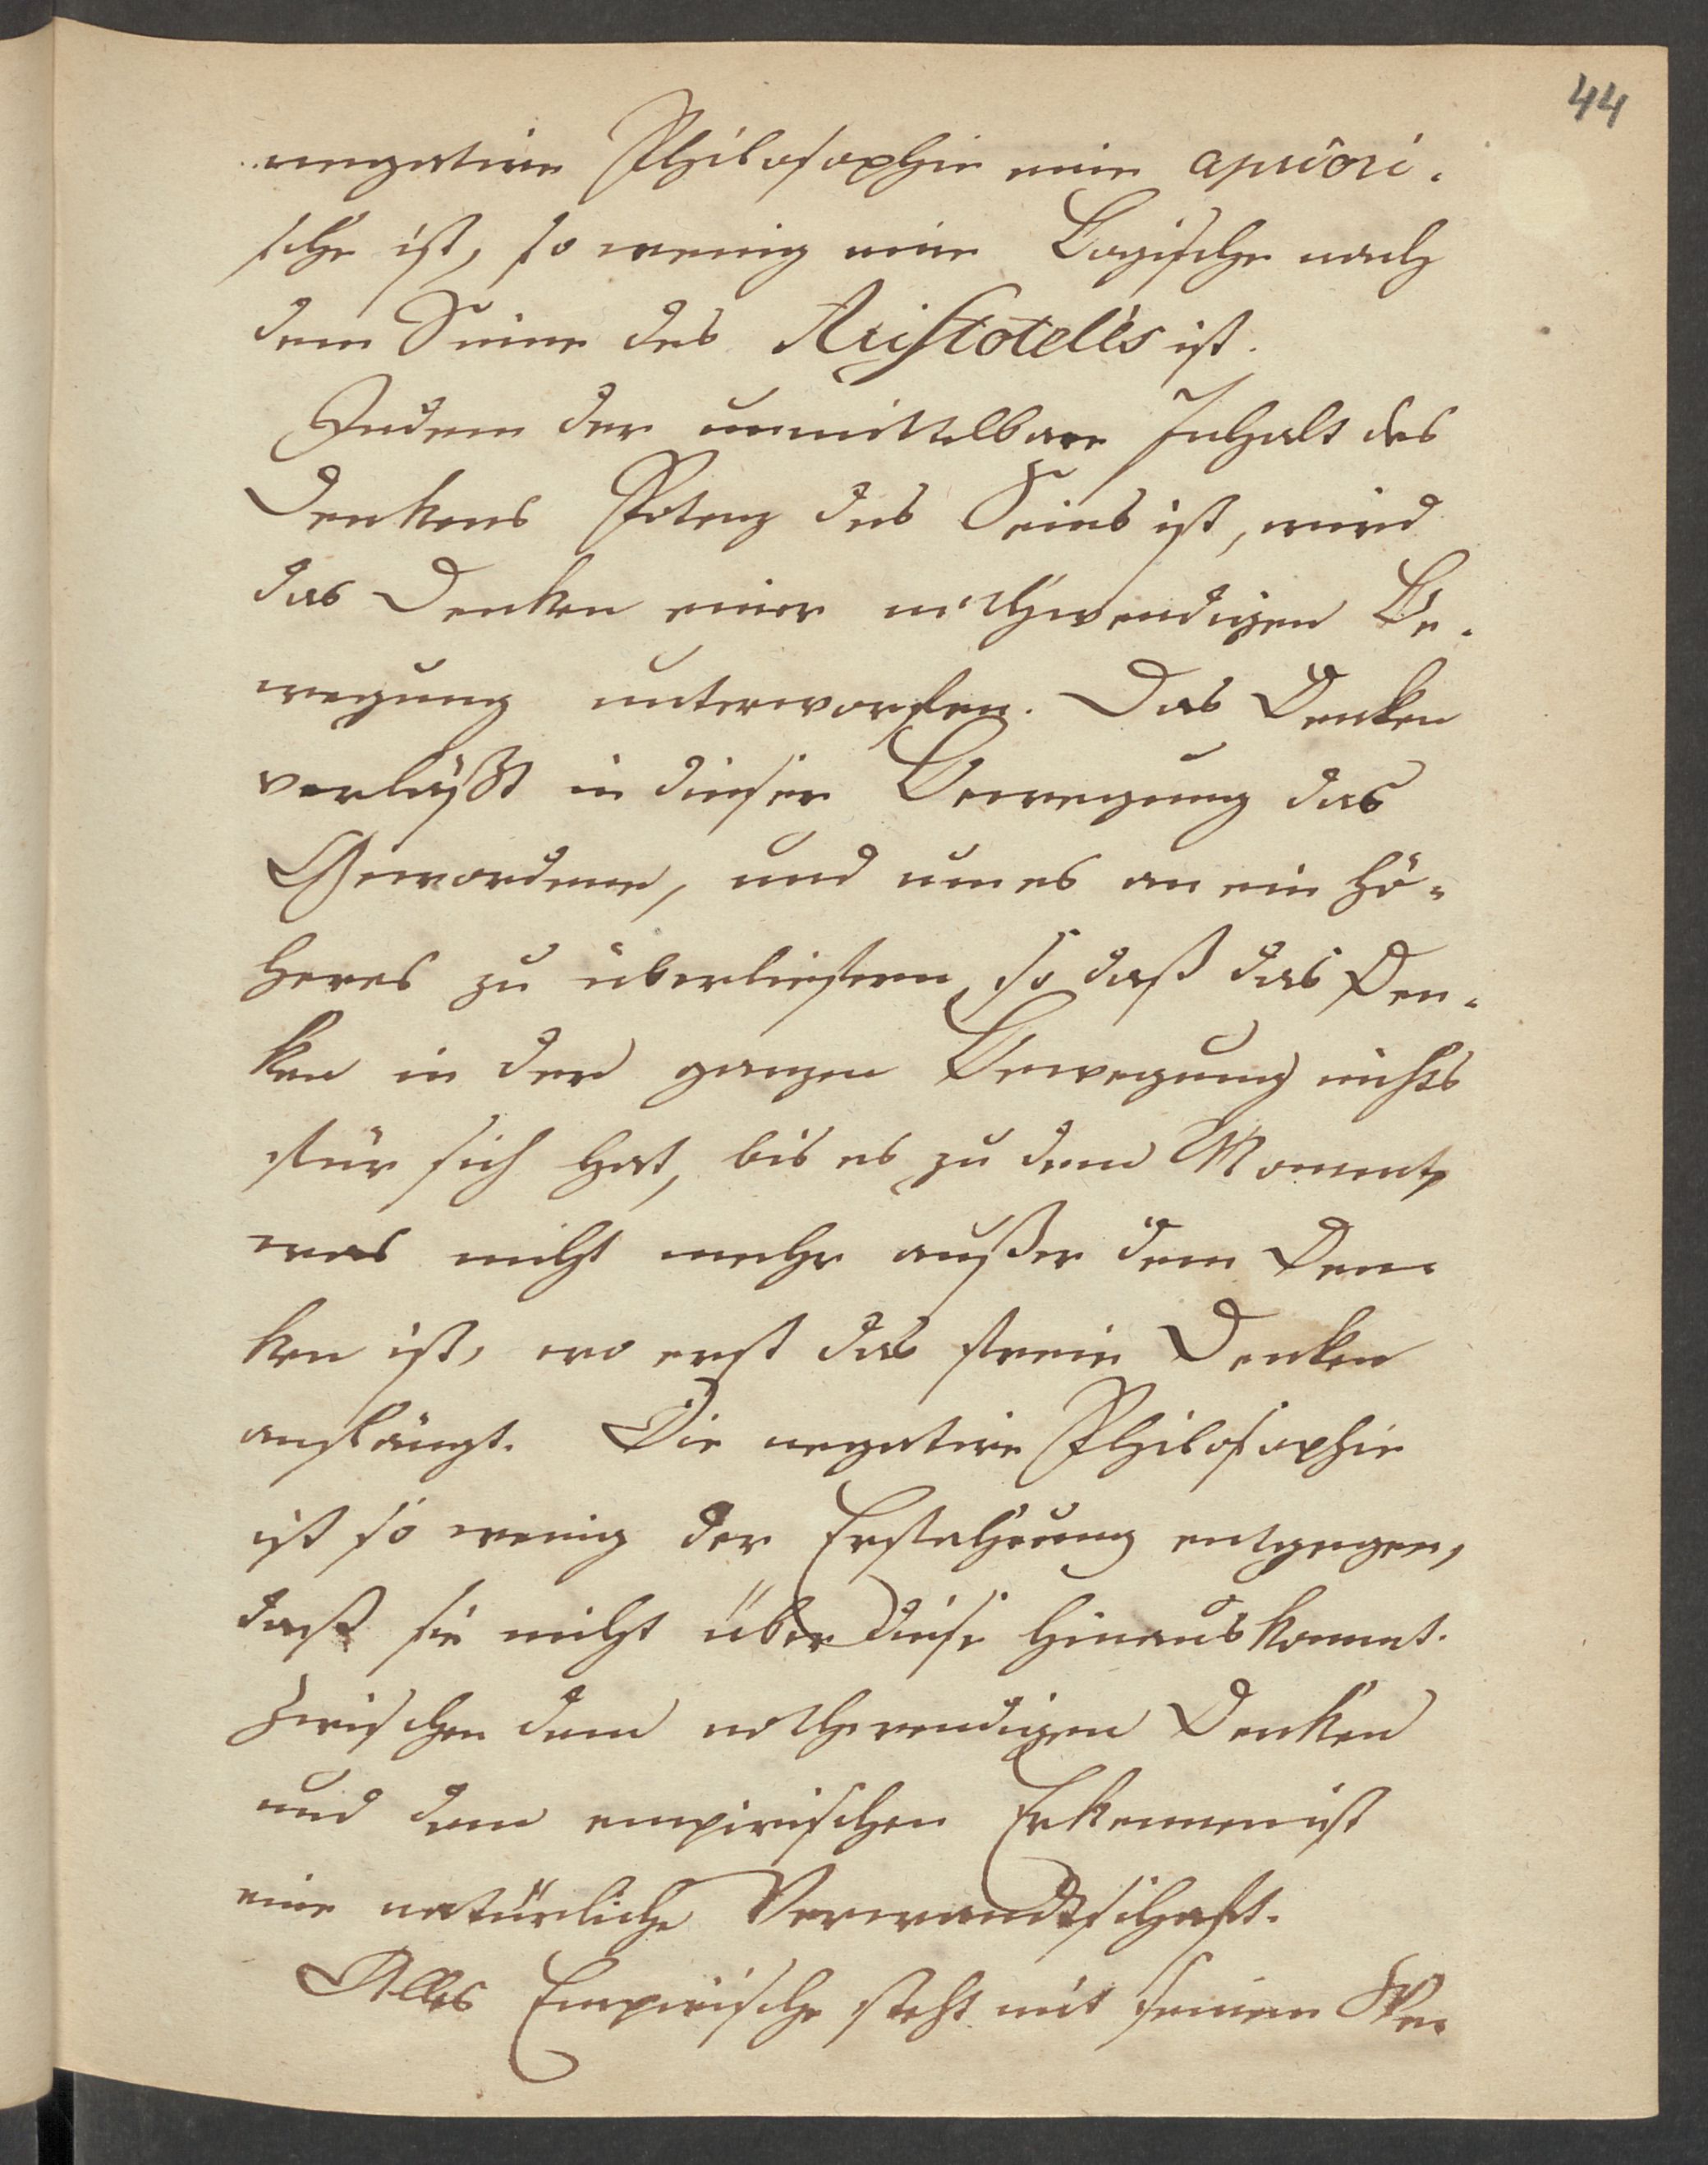 44
negative Philosophie eine apriori-
sche ist, so wenig eine Logische nach
dem Sinne des Aristoteles ist.
Indem der unmittelbare Inhalt des
Denkens Potenz des Seins ist, wird
das Denken einer nothwendigen Be-
wegung unterworfen. Das Denken
verläßt in dieser Bewegung das
Gewordene, und um es an ein hö-
heres zu überliefern, so daß das Den-
ken in der ganzen Bewegung nichts
für sich hat, bis es zu dem Moment,
was nicht mehr außer dem Den-
ken ist, wo erst das freie Denken
anfängt. Die negative Philosophie
ist so wenig der Erfahrung entgegen,
daß sie nicht über diese hinauskommt.
Zwischen dem nothwendigen Denken
und dem empirischen Erkennen ist
eine natürliche Verwandtschaft.
Alles Empirische steht mit seinem We-